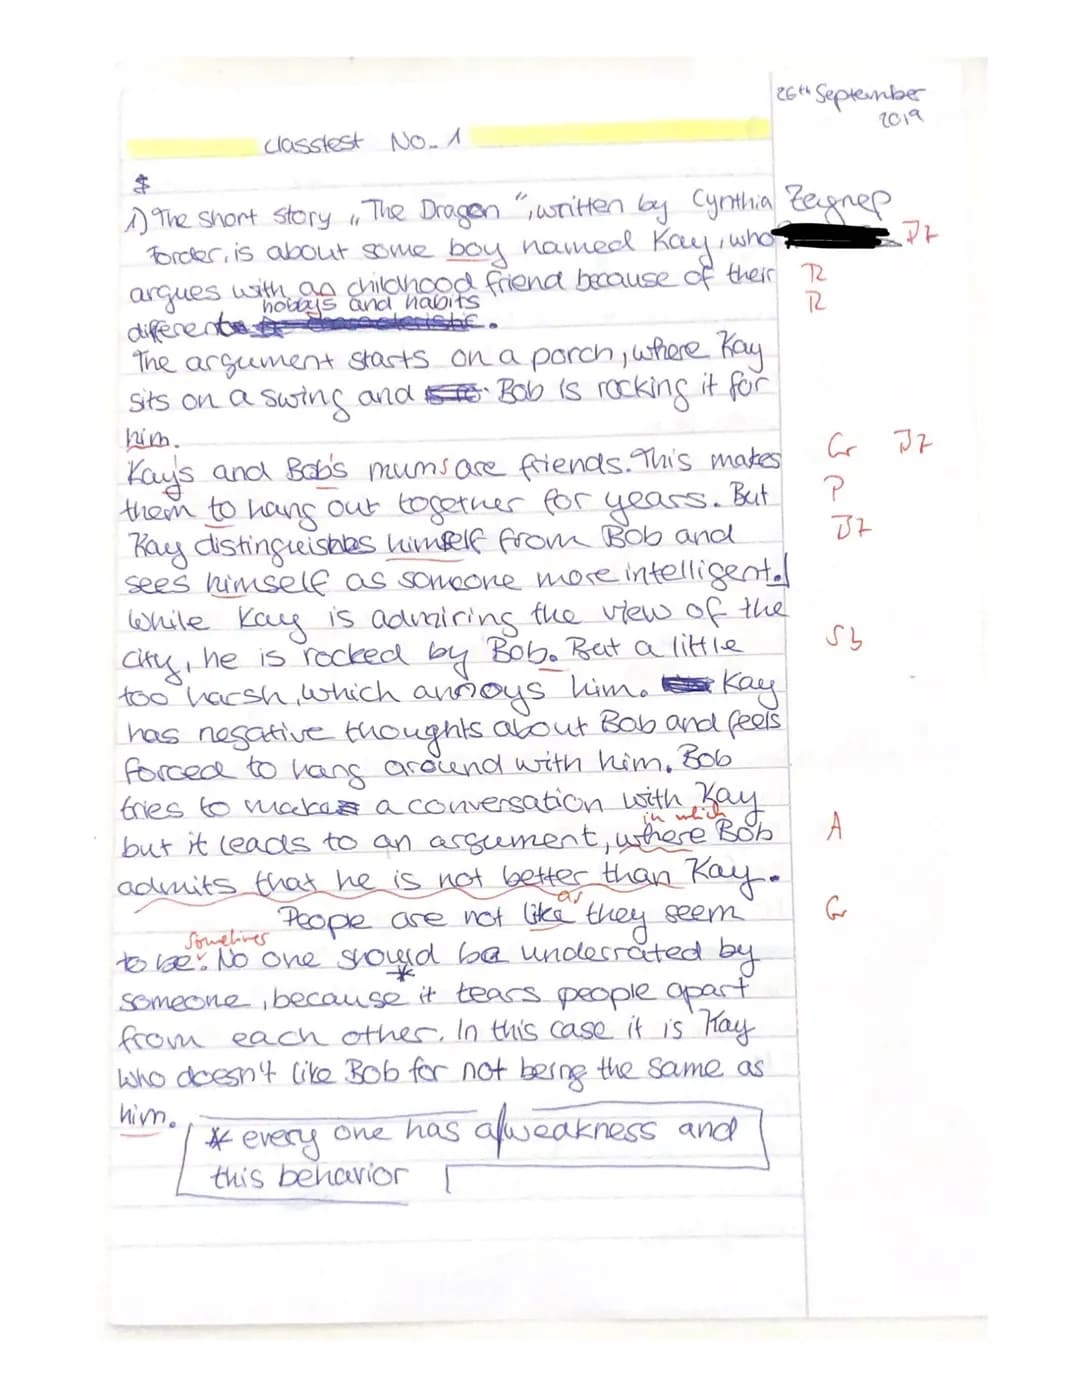 26th September
2019
classtest No. 1
1) The short story „The Dragon“, written by Cynthia Zeynep
Forder, is about some boy named Kay, who Bz
argues with an childhood friend because of their R
hobbys and habits R
diferent
The argument starts on a porch, where Kay
sits on a swing and Bob is rocking it for
him.
Kay's and Bob's mums are friends. This makes Gr Bz
them to hang out together for years. But P
Kay distinguishes himself from Bob and Bz
sees himself as someone more intelligent.
While Kay is admiring the view of the
city, he is rocked by Bob. But a little Sb
too harsh, which annoys him. Kay
has negative thoughts about Bob and feels
forced to hang around with him. Bob
tries to make a conversation with Kay
in which
but it leads to an argument, where Bob A
admits that he is not better than Kay.
as
People are not like they seem Gr
sometimes
to be. No one should be underrated by
*
someone, because it tears people apart
from each other. In this case it is Kay
who doesn't like Bob for not being the same as
him.
* every one has a weakness and
this behavior